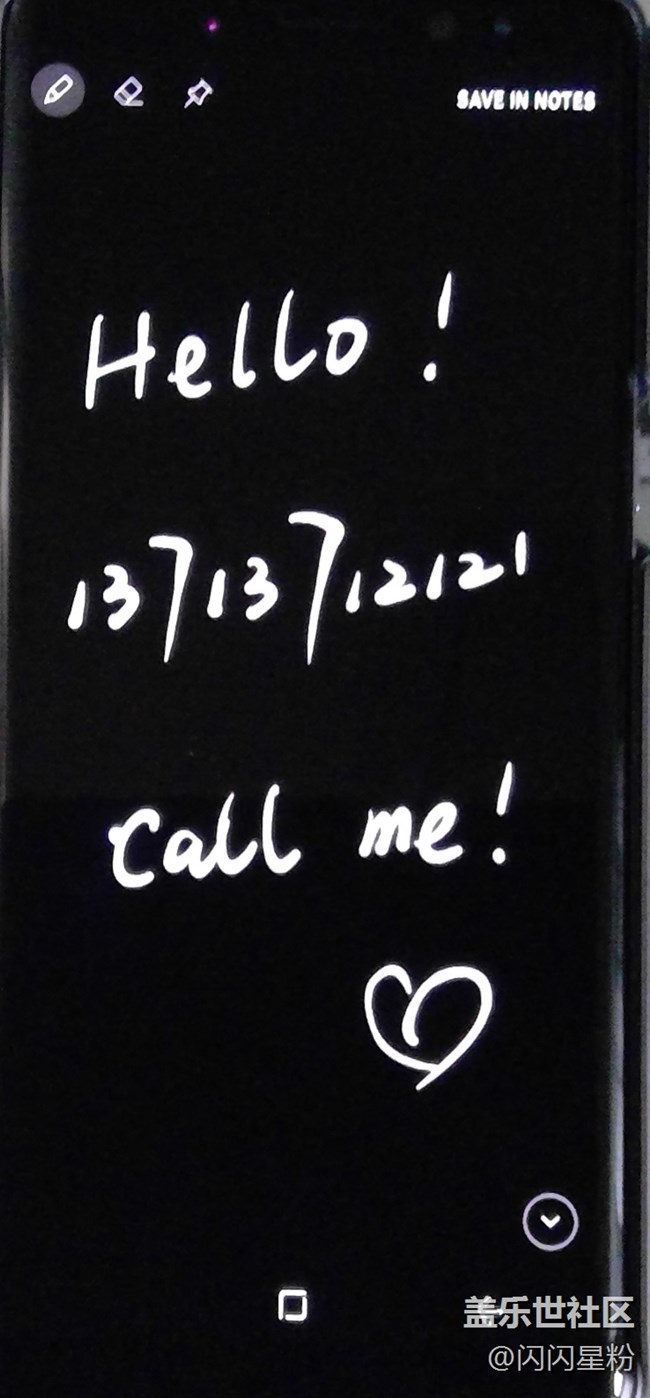 SAVE IN NOTES
Hello!
13713712121
Call me!
盖乐世社区
@闪闪星粉